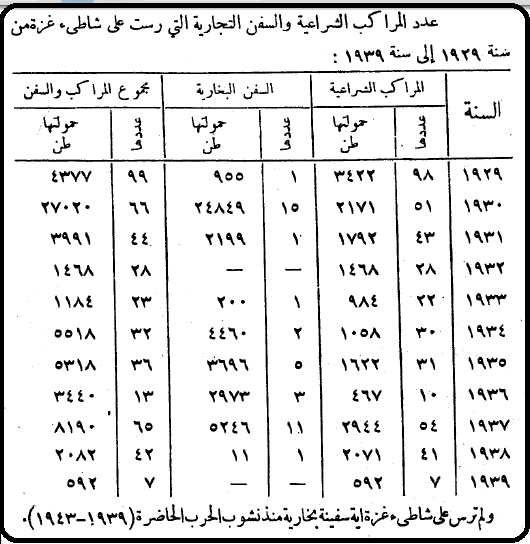 عدد المراكب الشراعية والسفن التجارية التي رست على شاطىء غزة من
سنة ١٩٢٩ إلى سنة ١٩٣٩ :
السنة المراكب الشراعية السفن البخارية مجموع المراكب والسفن
عددها حمولتها طن عددها حمولتها طن عددها حمولتها طن
١٩٢٩ ٩٨ ٣٤٢٢ ١ ٩٥٥ ٩٩ ٤٣٧٧
١٩٣٠ ٥١ ٢١٧١ ١٥ ٢٤٨٤٩ ٦٦ ٢٧٠٢٠
١٩٣١ ٤٣ ١٧٩٢ ١ ٢١٩٩ ٤٤ ٣٩٩١
١٩٣٢ ٢٨ ١٤٦٨ — — ٢٨ ١٤٦٨
١٩٣٣ ٢٢ ٩٨٤ ١ ٢٠٠ ٢٣ ١١٨٤
١٩٣٤ ٣٠ ١٠٥٨ ٢ ٤٤٦٠ ٣٢ ٥٥١٨
١٩٣٥ ٣١ ١٦٢٢ ٥ ٣٦٩٦ ٣٦ ٥٣١٨
١٩٣٦ ١٠ ٤٦٧ ٣ ٢٩٧٣ ١٣ ٣٤٤٠
١٩٣٧ ٥٤ ٢٩٤٤ ١١ ٥٢٤٦ ٦٥ ٨١٩٠
١٩٣٨ ٤١ ٢٠٧١ ١ ١١ ٤٢ ٢٠٨٢
١٩٣٩ ٧ ٥٩٢ — — ٧ ٥٩٢
ولم ترس على شاطىء غزة اية سفينة بخارية منذ نشوب الحرب الحاضرة (١٩٣٩-١٩٤٣).